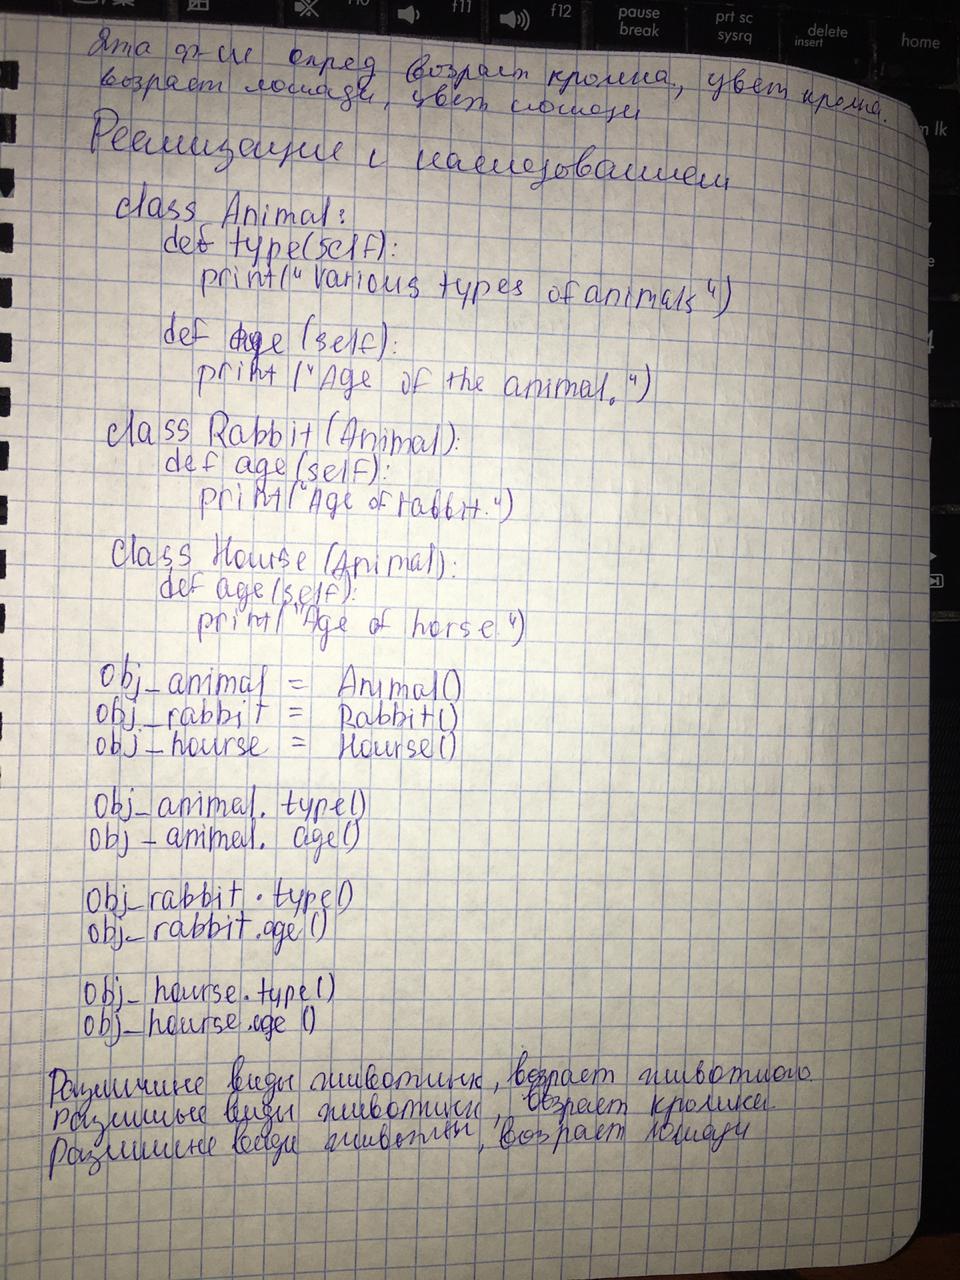 f11
f12
pause
break
prt sc
sysrq
delete
insert
home
lk
Эта ф-ия опред возраст кролика, цвет кролика.
возраст лошади, цвет лошади
Реализация с наследованием
class Animal:
def type(self):
print("Various types of animals")
def age (self):
print ("Age of the animal.")
class Rabbit (Animal):
def age (self):
print("Age of rabbit.")
class Hourse (Animal):
def age (self):
print("Age of horse.")
obj_animal = Animal()
obj_rabbit = Rabbit()
obj_hourse = Hourse()
obj_animal. type()
obj_animal. age()
obj_rabbit. type()
obj_rabbit.age()
obj_hourse.type()
obj_hourse.age ()
Различные виды животных, возраст животного.
Различные виды животных, возраст кролика.
Различные виды животных, возраст лошади